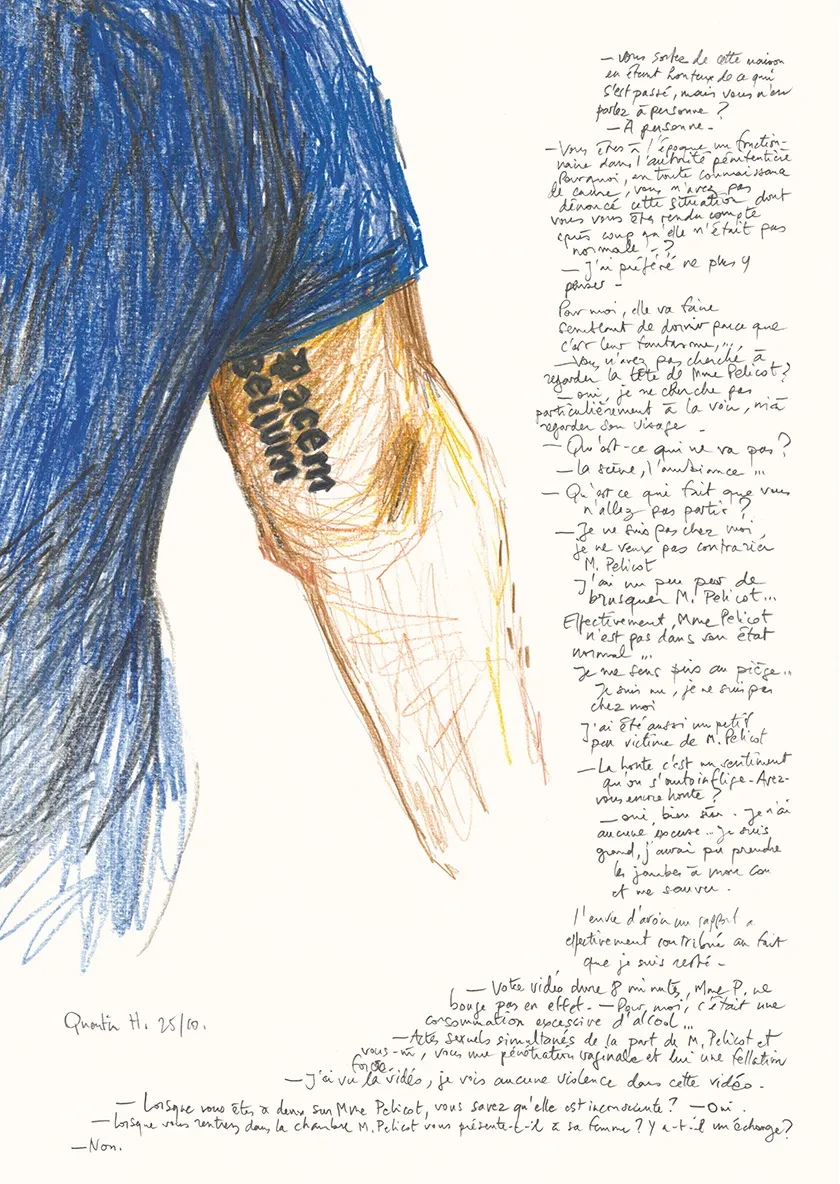 Pacem
Bellum
— Vous sortez de cette maison
en étant honteux de ce qui
s'est passé, mais vous n'en
parlez à personne ?
— À personne -
— Vous êtes à l'époque un fonction-
naire dans l'autorité pénitentiaire
Pourquoi, en toute connaissance
de cause, vous n'avez pas
dénoncé cette situation dont
vous vous êtes rendu compte
après coup qu'elle n'était pas
normale - ?
— J'ai préféré ne plus y
penser -
Pour moi, elle va faire
semblant de dormir parce que
c'est leur fantasme, ...
— Vous n'avez pas cherché à
regarder la tête de Mme Pelicot ?
— oui, je ne cherche pas
particulièrement à la voir, ni à
regarder son visage -
— Qu'est-ce qui ne va pas ?
— la scène, l'ambiance ...
— Qu'est ce qui fait que vous
n'allez pas partir ?
— Je ne suis pas chez moi,
je ne veux pas contrarier
M. Pelicot
J'ai un peu peur de
brusquer M. Pelicot ...
Effectivement, Mme Pelicot
n'est pas dans son état
normal ...
Je me sens pris au piège ..
Je suis nu, je ne suis pas
chez moi
J'ai été aussi un petit
peu victime de M. Pelicot
— La honte c'est un sentiment
qu'on s'autoinflige - Avez-
vous encore honte ?
— oui, bien sûr . Je n'ai
aucune excuse .. Je suis
grand, j'aurai pu prendre
les jambes à mon cou
et me sauver .
l'envie d'avoir un rapport a
effectivement contribué au fait
que je suis resté -
— Votre vidéo dure 8 minutes, Mme P. ne
bouge pas en effet . — Pour moi, c'était une
consommation excessive d'alcool ...
— Actes sexuels simultanés de la part de M. Pelicot et
vous-m, vous une pénétration vaginale et lui une fellation
forcée
— J'ai vu la vidéo, je vois aucune violence dans cette vidéo -
— Lorsque vous êtes à deux sur Mme Pelicot, vous savez qu'elle est inconsciente ? — Oui .
— Lorsque vous rentrez dans la chambre M. Pelicot vous présente-t-il à sa femme ? Y a-t-il un échange ?
— Non.
Quentin H. 25/10.